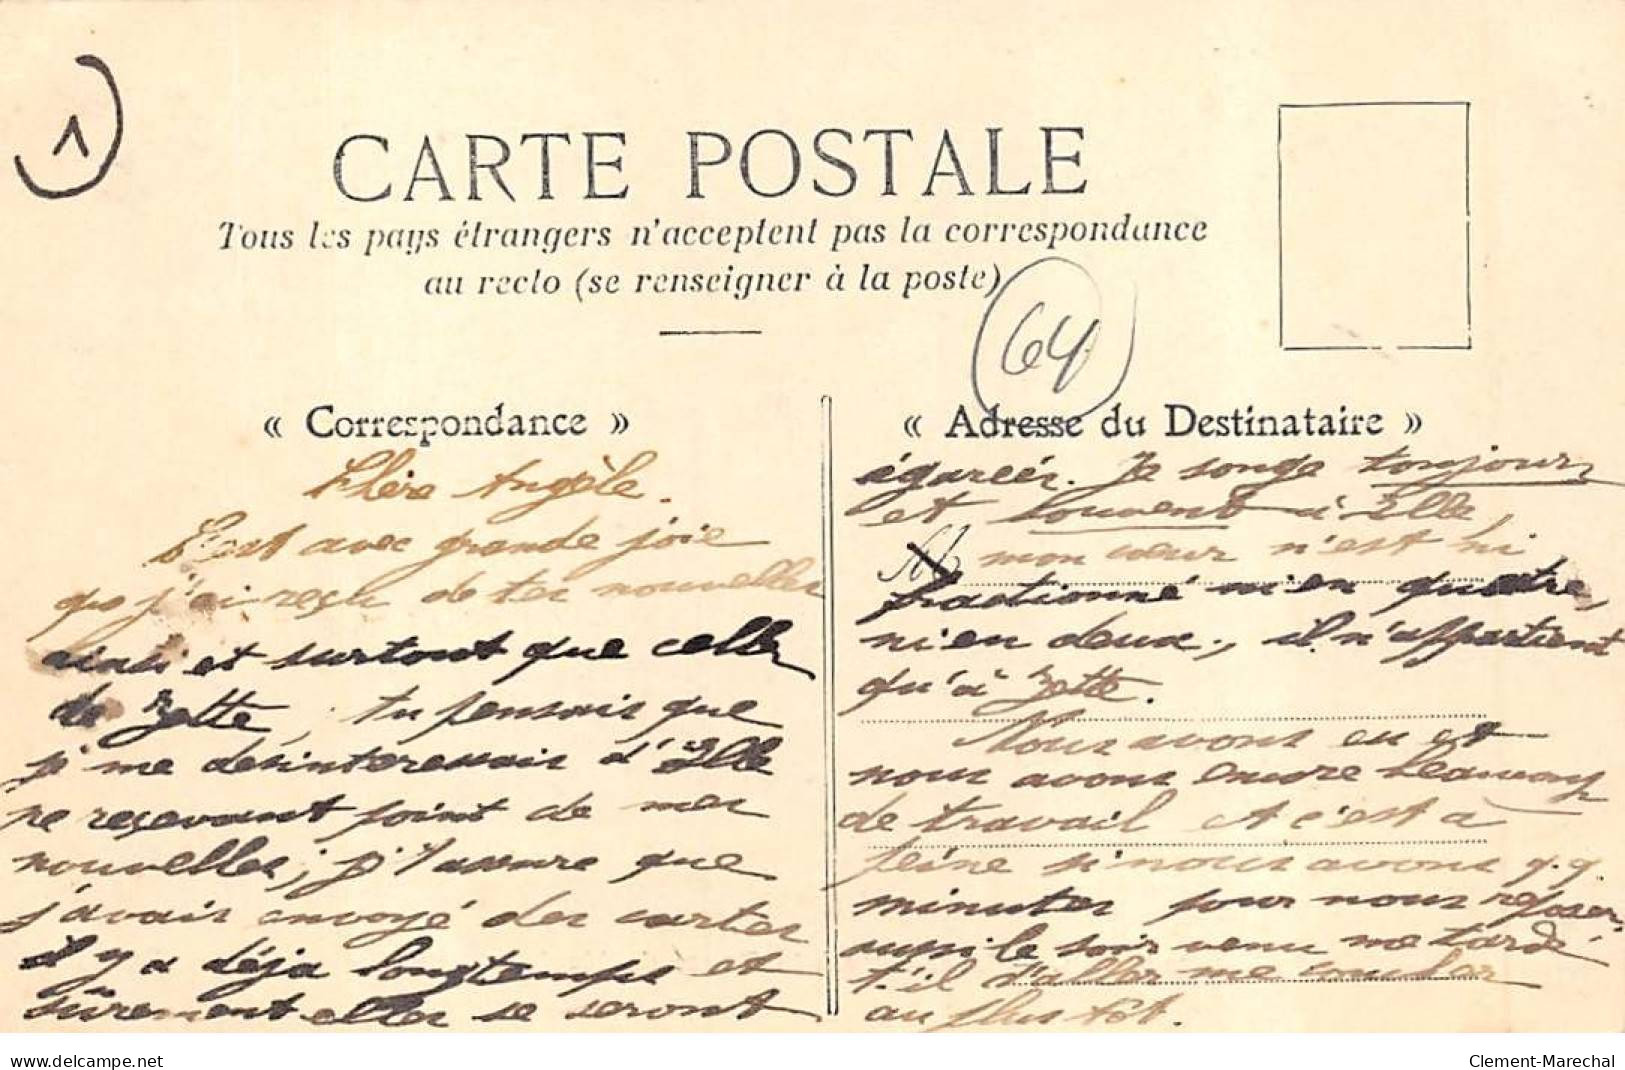 CARTE POSTALE
Tous les pays étrangers n'acceptent pas la correspondance
au recto (se renseigner à la poste)
64
« Correspondance »
Chère Angèle.
C'est avec grande joie
que j'ai reçu de tes nouvelles
ainsi et surtout que celles
de Zette, tu pensais que
je me désinteressais d'Elle
ne recevant point de mes
nouvelles; je t'assure que
j'avais envoyé des cartes
il y a déja longtemps et
sûrement elles se seront
« Adresse du Destinataire »
égarées. Je songe toujours
et souvent à Elle,
M
mon cœur n'est ni
fractionné ni en quatre,
ni en deux, il n'appartient
qu'à Zette.
Nous avons eu et
nous avons encore beaucoup
de travail et c'est à
peine si nous avons q.q.
minutes pour nous reposer
aussi le soir venu me tarde
t'il d'aller me coucher
au plus tôt.
www.delcampe.net
Clement-Marechal